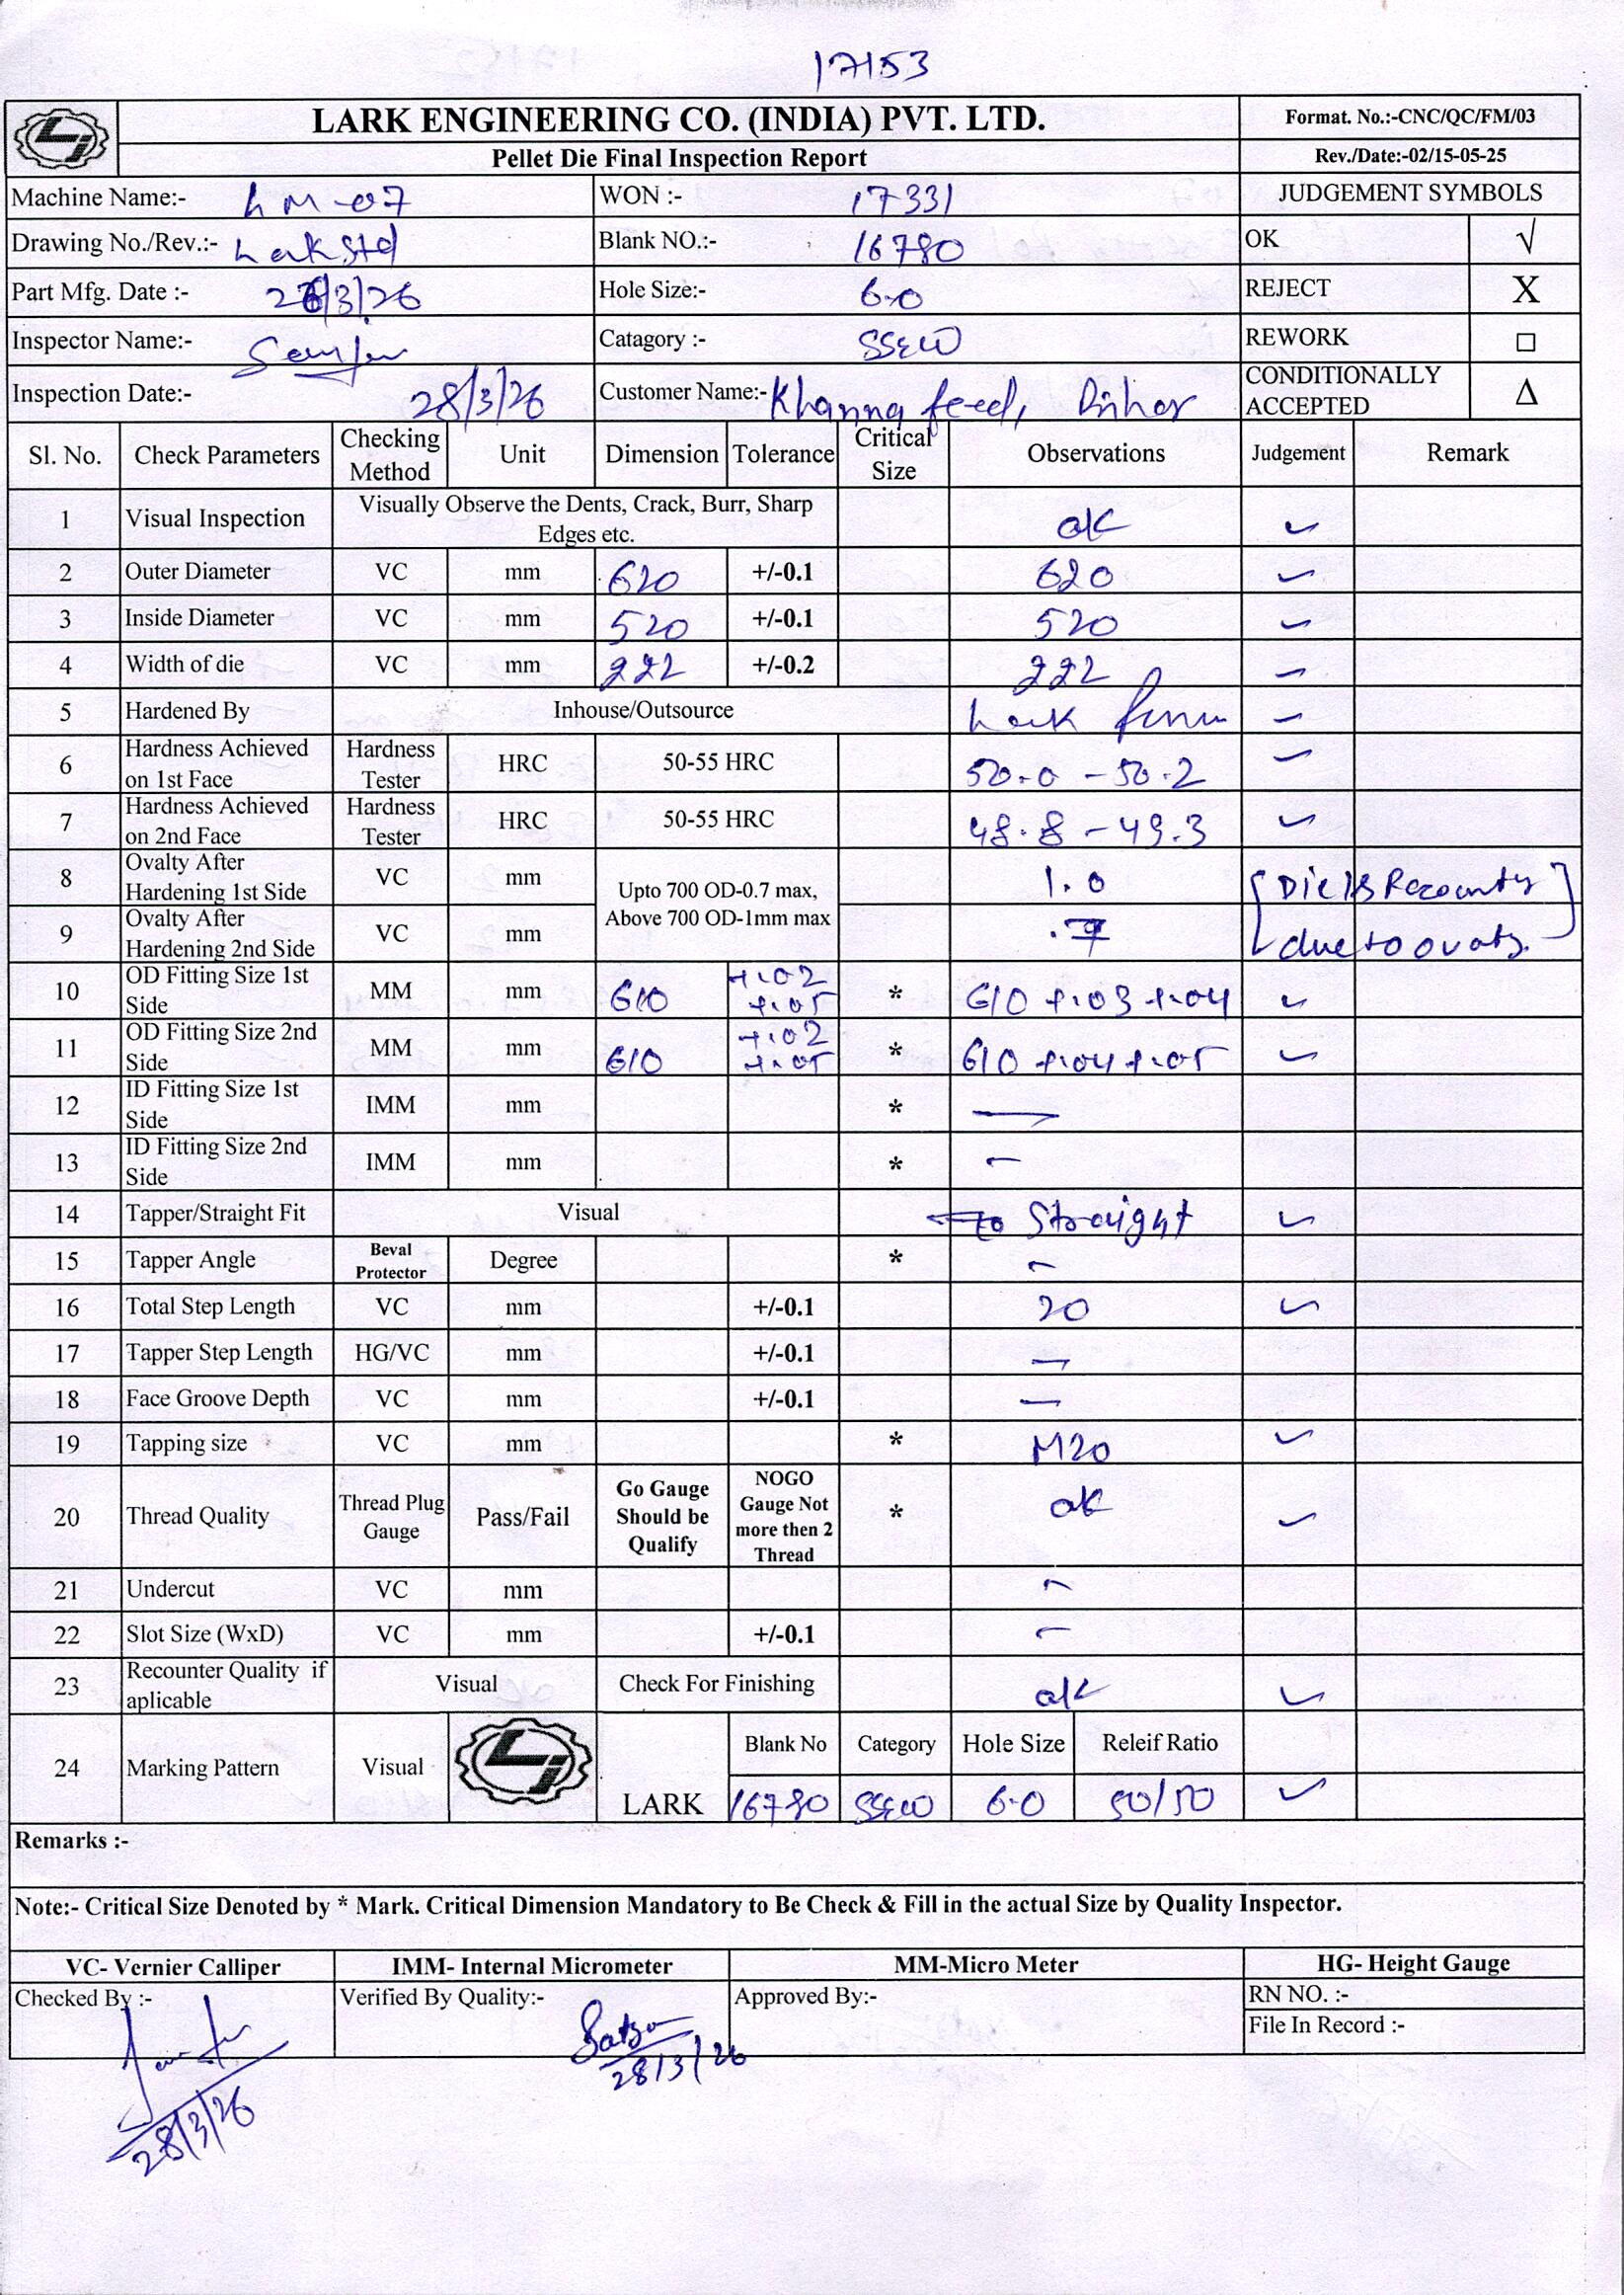 17153
LARK ENGINEERING CO. (INDIA) PVT. LTD.
Format. No.:-CNC/QC/FM/03
Pellet Die Final Inspection Report
Rev./Date:-02/15-05-25
Machine Name:- LM-07 WON :- 17331 JUDGEMENT SYMBOLS
Drawing No./Rev.:- Lark Std Blank NO.:- 16780 OK √
Part Mfg. Date :- /3/26 Hole Size:- 6.0 REJECT X
Inspector Name:- Catagory :- REWORK □
Inspection Date:- 28/3/26 Customer Name:- Khanna feed, Bihar CONDITIONALLY ACCEPTED Δ
Sl. No. Check Parameters Checking Method Unit Dimension Tolerance Critical Size Observations Judgement Remark
1 Visual Inspection Visually Observe the Dents, Crack, Burr, Sharp Edges etc. ok ✓
2 Outer Diameter VC mm 620 +/-0.1 620 ✓
3 Inside Diameter VC mm 520 +/-0.1 520 ✓
4 Width of die VC mm 222 +/-0.2 222 ✓
5 Hardened By Inhouse/Outsource Lark ✓
6 Hardness Achieved on 1st Face Hardness Tester HRC 50-55 HRC 50.0 - 50.2 ✓
7 Hardness Achieved on 2nd Face Hardness Tester HRC 50-55 HRC 48.8 - 49.3 ✓
8 Ovalty After Hardening 1st Side VC mm Upto 700 OD-0.7 max, Above 700 OD-1mm max 1.0 Die is Recounter
9 Ovalty After Hardening 2nd Side VC mm .7 due to ovaty.
10 OD Fitting Size 1st Side MM mm 610 +.02 +.05 * 610 +.03 +.04 ✓
11 OD Fitting Size 2nd Side MM mm 610 +.02 +.05 * 610 +.04 +.05 ✓
12 ID Fitting Size 1st Side IMM mm * —
13 ID Fitting Size 2nd Side IMM mm * —
14 Tapper/Straight Fit Visual Straight ✓
15 Tapper Angle Beval Protector Degree * —
16 Total Step Length VC mm +/-0.1 20 ✓
17 Tapper Step Length HG/VC mm +/-0.1 —
18 Face Groove Depth VC mm +/-0.1 —
19 Tapping size VC mm * M20 ✓
20 Thread Quality Thread Plug Gauge Pass/Fail Go Gauge Should be Qualify NOGO Gauge Not more then 2 Thread * ok ✓
21 Undercut VC mm —
22 Slot Size (WxD) VC mm +/-0.1 —
23 Recounter Quality if aplicable Visual Check For Finishing ok ✓
24 Marking Pattern Visual LARK Blank No Category Hole Size Releif Ratio
16780 6.0 50/50 ✓
Remarks :-
Note:- Critical Size Denoted by * Mark. Critical Dimension Mandatory to Be Check & Fill in the actual Size by Quality Inspector.
VC- Vernier Calliper IMM- Internal Micrometer MM-Micro Meter HG- Height Gauge
Checked By :- Verified By Quality:- Approved By:- RN NO. :-
File In Record :-
28/3/26
28/3/26